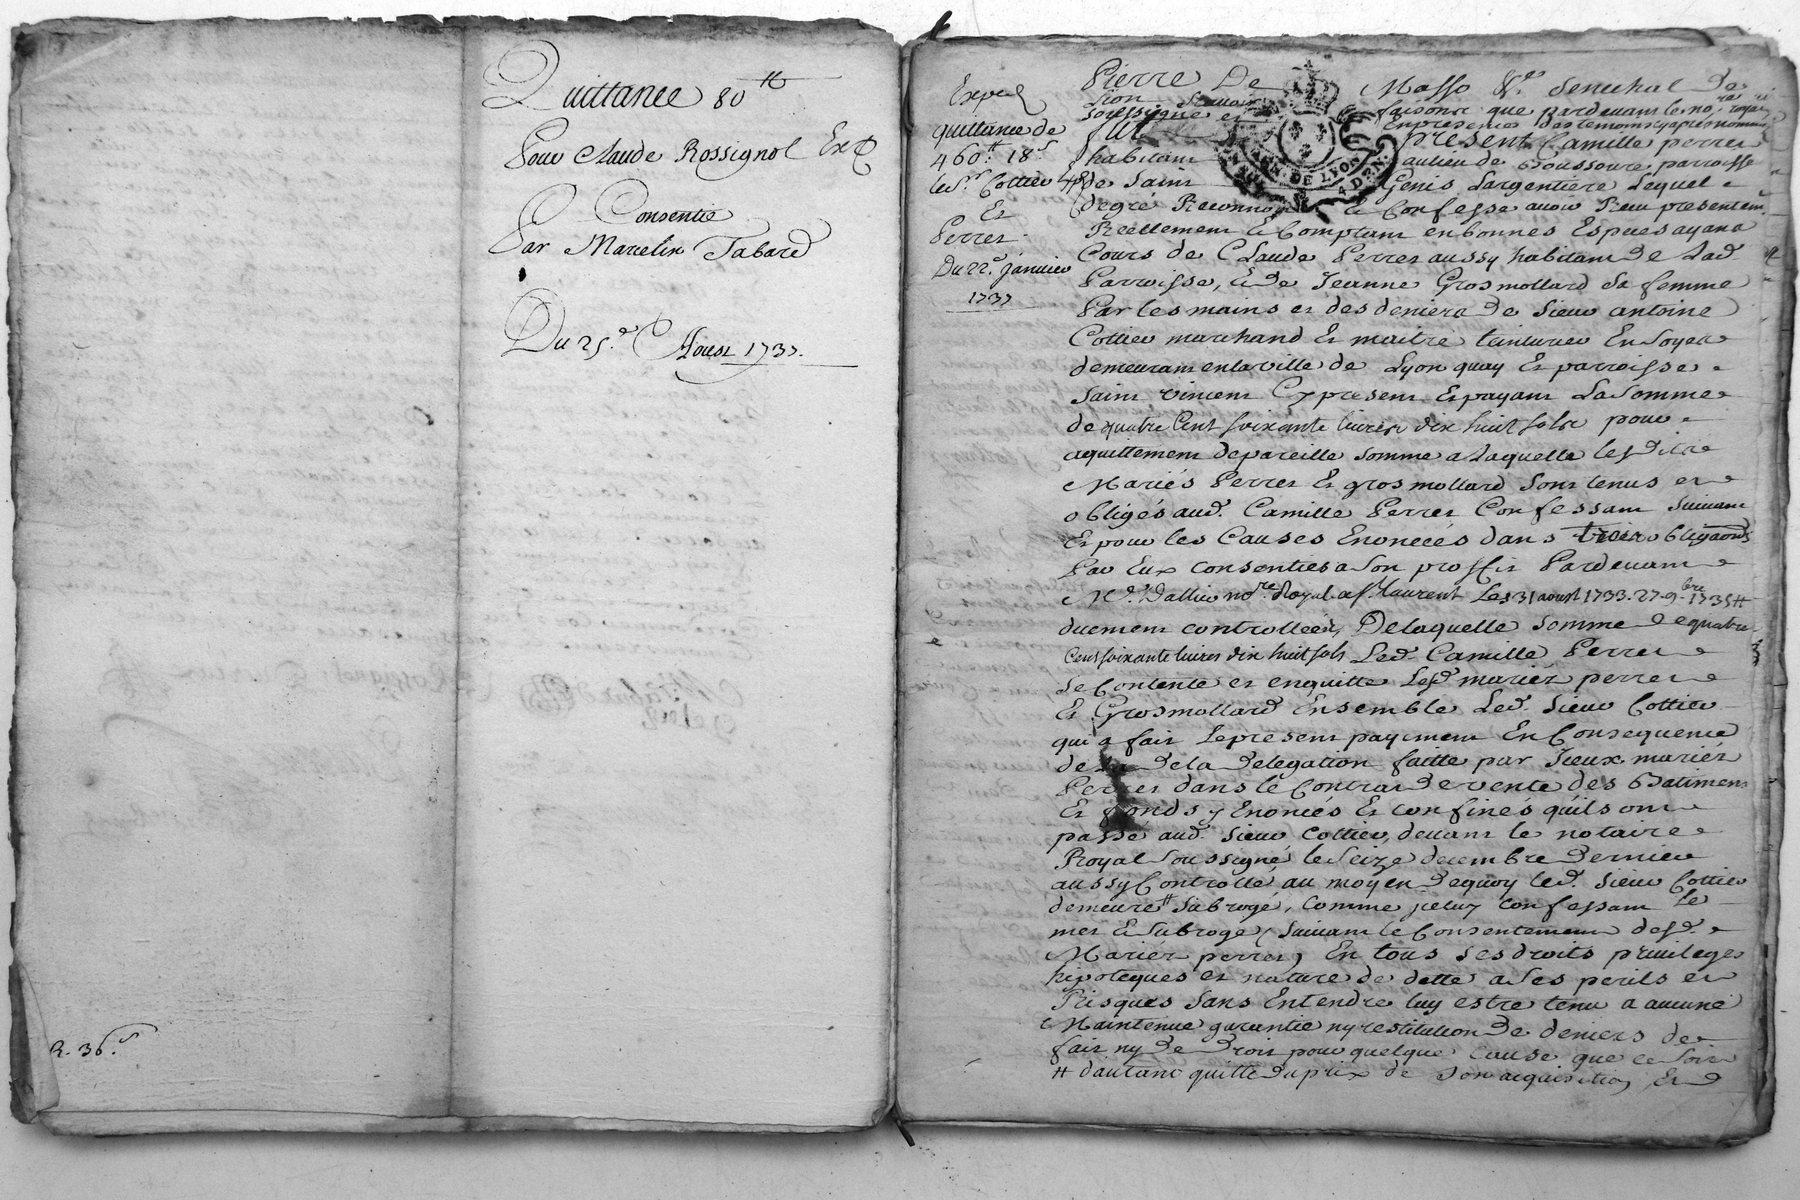 Quittance 80 ₶
Pour Claude Rossignol
Consentie
Par Marcelin Tabard
Du 25.e Aoust 1737.
R. 36.s
Exped
quittance de
460.₶ 18.s
le s.r Cottier
Et
Perret
Du 22.e janvier
1737
Pierre De Masso Senechal de
Lion Scavoir faisons que pardevant le no.re royal
soussigné et en presence des temoins cy apres nommes
fut present Camille perret
habitant au lieu de Boussoure parroisse
de Saint Genis Largentiere Lequel
degre Reconnoit & Confesse avoir Receu presentem.
Reellement & Comptant en bonnes Especes ayant
Cours de Claude Perret aussy habitant De Lad.
Parroisse, & de Jeanne Grosmollard sa femme
Par les mains et des deniers De Sieur antoine
Cottier marchand Et maitre teinturier En Soyes
demeurant en la ville de Lyon quay Et parroisse
Saint vincent Cy present Et payant La Somme
de quatre Cent soixante livres dix huit sols pour
aquittement de pareille somme a Laquelle lesdits
Mariés Perret Et grosmollard Sont tenus et
obligés aud. Camille Perret Confessant Suivant
Et pour les Causes Enoncées dans trois obligaons
Par Eux consenties a Son proffit Pardevant
M.e Dallier no.re Royal a s.t Laurent Les 31 aoust 1733. 27. 9.bre 1735 #
duement controllées, De laquelle somme De quatre
Cent soixante livres dix huit sols Led. Camille Perret
Se Contente et en quitte Lesd. mariés perret
Et Grosmollard Ensemble Led. Sieur Cottier
qui a fait Le present payement En Consequence
de la Delegation faitte par Iceux mariés
Perret dans le Contrat De vente des Batimens
Et fonds y Enoncés Et confinés qu'ils ont
passé aud. Sieur Cottier, devant le notaire
Royal Soussigné le Seize decembre Dernier
aussy Controllé au moyen De quoy led. Sieur Cottier
demeure # Subrogé, Comme iceluy confessant le
met & Subroge (Suivant le Consentement desd.
Mariés perret) En tous Ses droits privileges
hipoteques et nature de dette a Ses perils et
Risques Sans Entendre luy estre tenu a aucune
Maintenue garantie ny restitution De deniers de
fait ny De Droit pour quelque Cause que ce Soit
# d'autant quitte Du prix de Son acquisition, Et